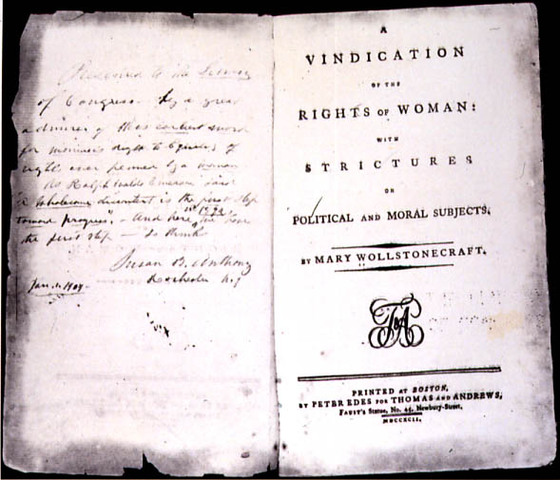 Presented to the Library
of Congress by a great
admirer of this earliest word
for woman's right to Equality of
rights ever penned by a woman
As Ralph Waldo Emerson said
"A wholesome discontent is the first step
toward progress" - And here in 1792 we have
the first step - so thinks
Susan B. Anthony
Rochester N.Y.
Jan. 1. 1904
A
VINDICATION
OF THE
RIGHTS OF WOMAN:
WITH
STRICTURES
ON
POLITICAL AND MORAL SUBJECTS.
BY MARY WOLLSTONECRAFT.
T&A
PRINTED AT BOSTON,
BY PETER EDES FOR THOMAS AND ANDREWS,
FAUST'S Statue, No. 45, Newbury-Street,
MDCCXCII.